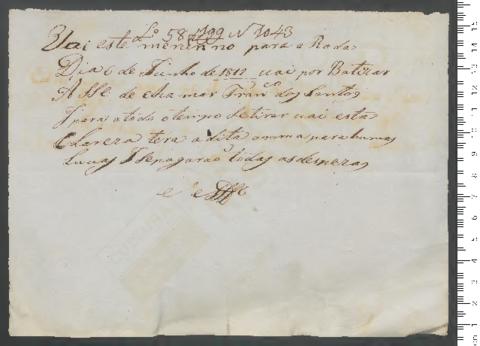 Lº 58 1799 N 1043
Vai este meninno para a Roda
Dia 6 de Junho de 1811 vai por Batizar
A se de chamar Francco dos Santos
para atodo otempo setirar vai esta
Clareza tera adita
Sepagarão todas asdespezas